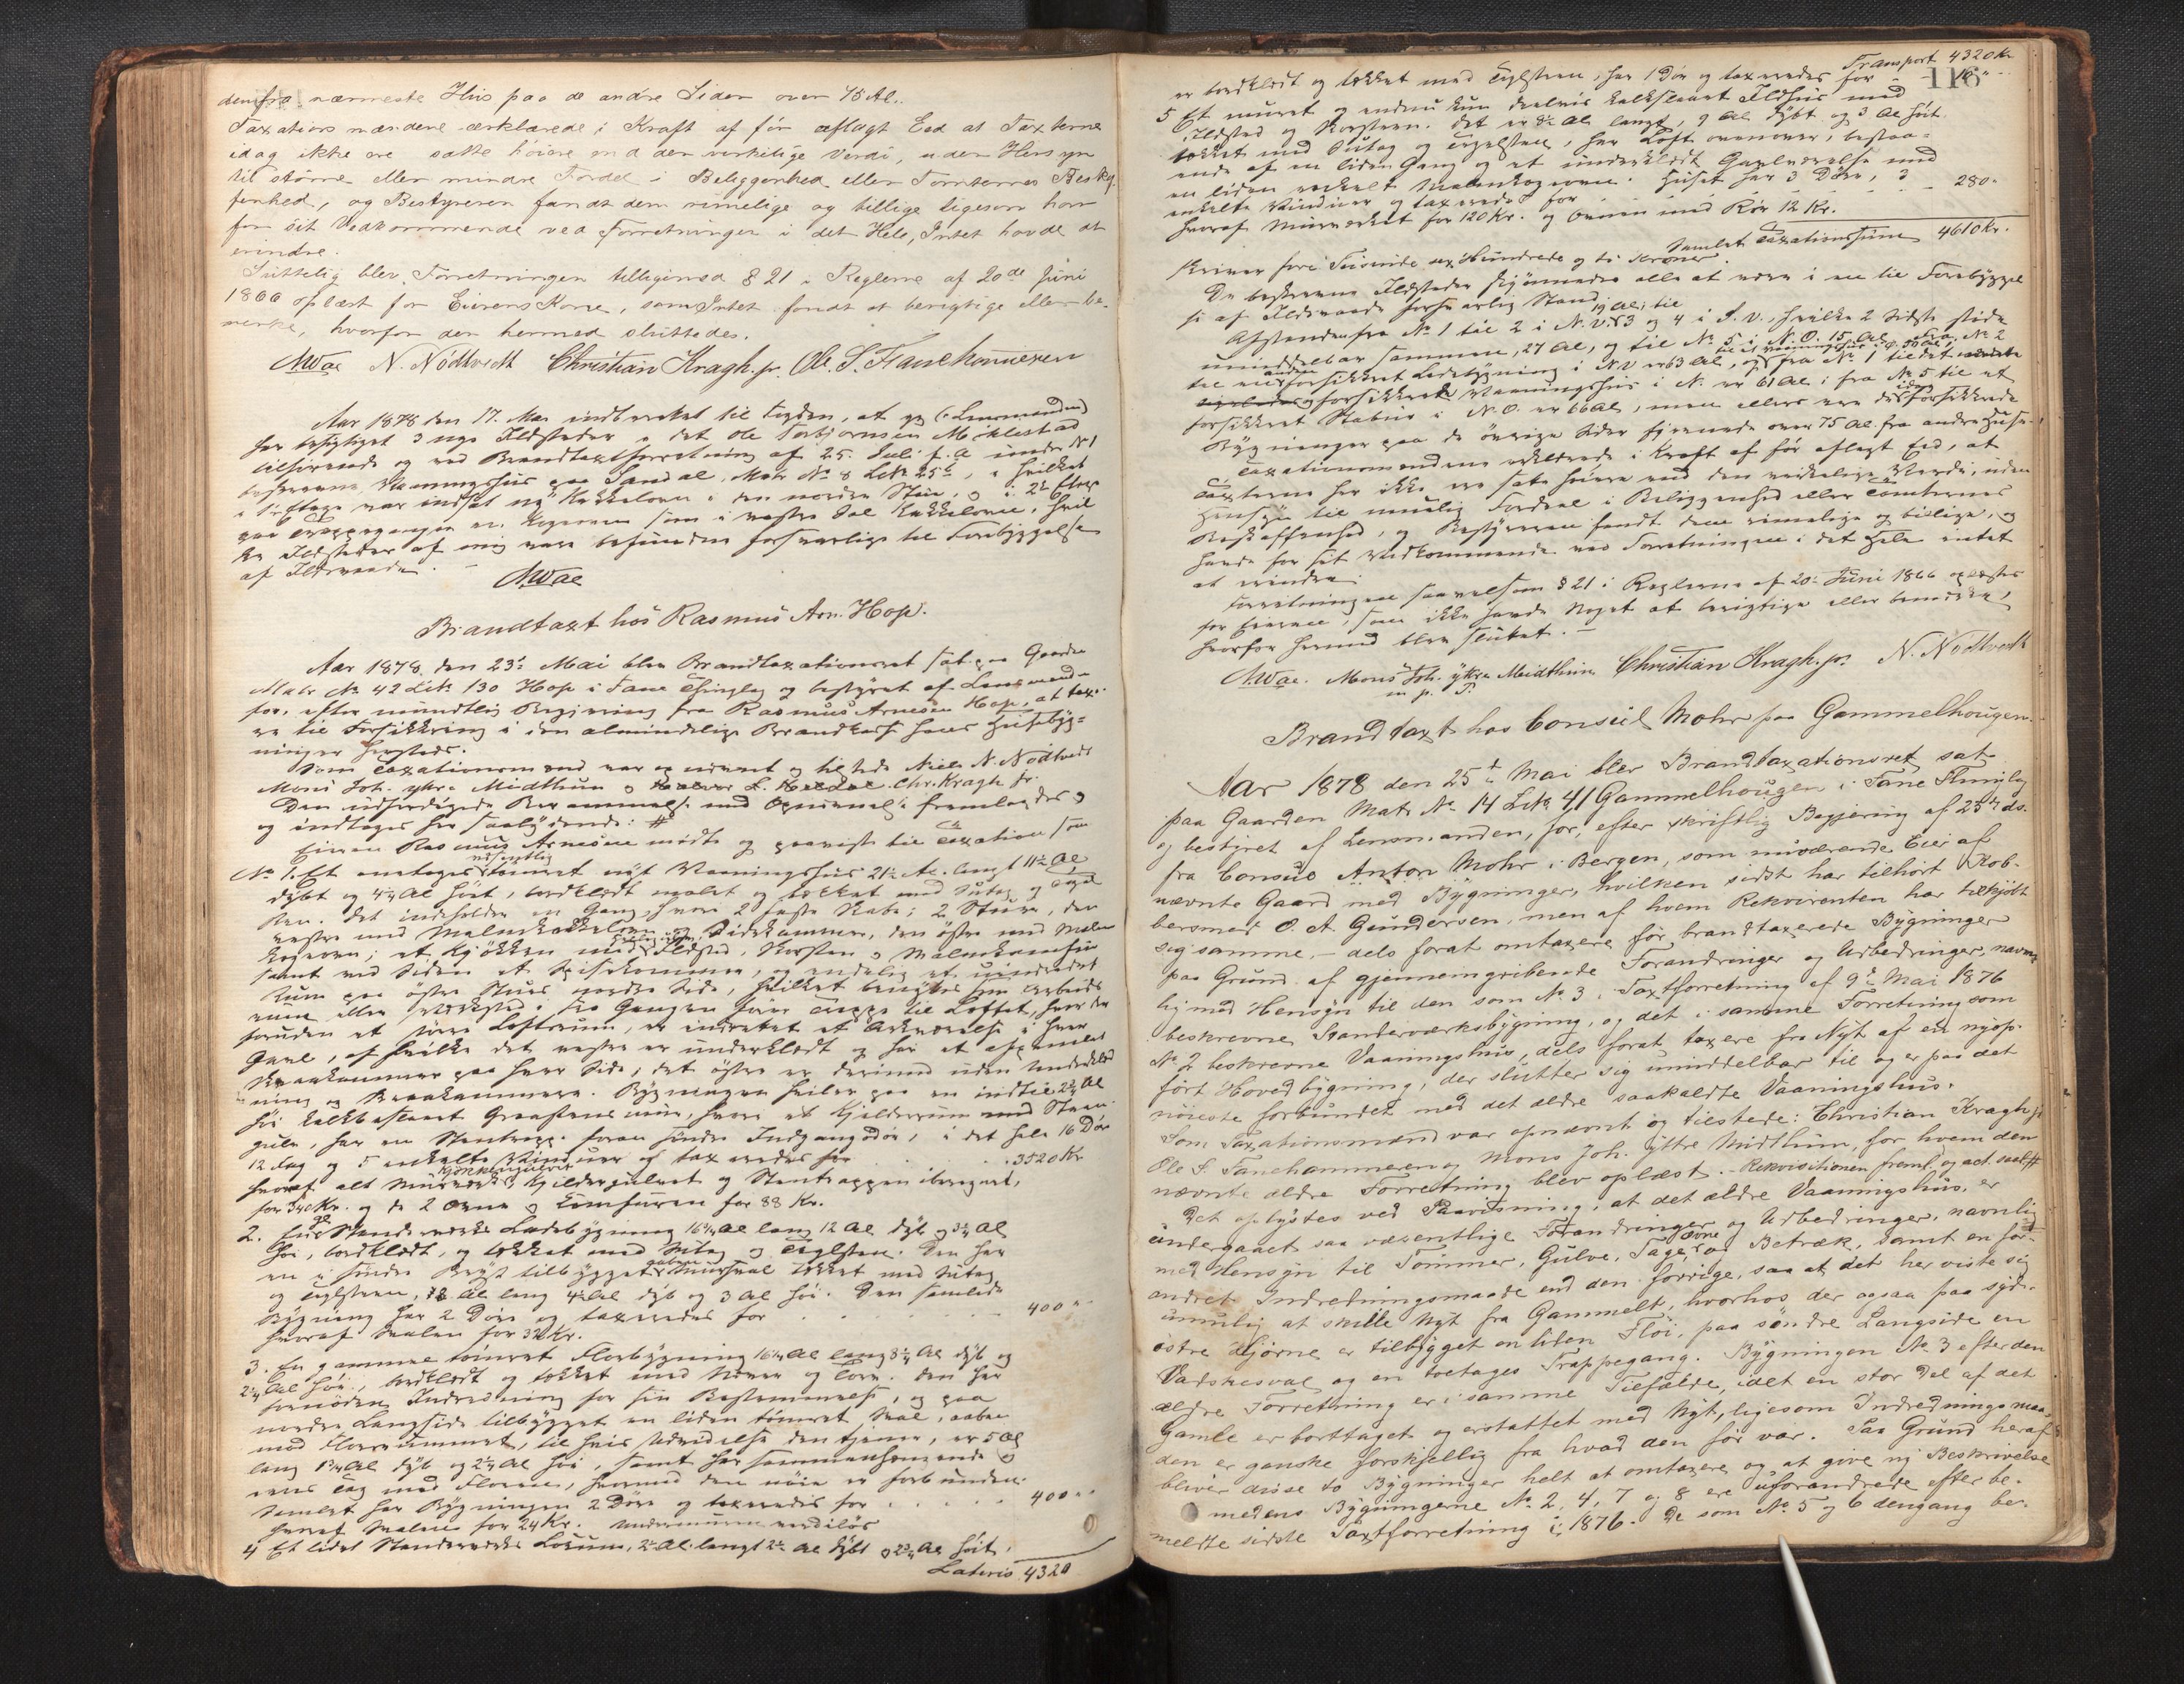 denfra nærmeste Hus paa de andre Sider over 75 Al.
Taxationsmændene erklærede i Kraft af før aflagt Eed at Taxterne
idag ikke ere satte høiere end den virkelige Verdi, uden Hensyn
til større eller mindre Fordel i Beliggenhed eller Tomternes Beskaf-
fenhed, og Bestyreren fandt dem rimelige og billige ligesom han
for sit Vedkommende ved Forretningen i det Hele, Intet havde at
erindre.
Sluttelig blev Forretningen tilligemed § 21 i Reglerne af 20de Juni
1866 oplæst for Eierens Kone, som Intet fandt at berigtige eller be-
mærke, hvorfor den hermed sluttedes.
N. Nødtvedt Christian Kragh. jr. Ole S. Fanehammeren
Aar 1878 den 17. Mai indberettet til Fogden, at jeg (Lensmanden)
har besigtiget 3 nye Ildsteder i det Ole Torbjørnsen Miklestad
tilhørende og ved Brandtaxtforretning af 25. Juli f.A. under No 1
beskrevne Vaaningshus paa Sandal, Matr No 8 Lit. 25 b, i hvilket
i 1ste Etage var indsat ny Kakkelovn i den nordre Stue, og i 2den Etage
paa Trappegangen en Kogeovn som i vestre Sal Kakkelovn, hvil-
ke Ildsteder af mig vare befundne forsvarlige til Forebyggelse
af Ildsvaade.
Brandtaxt hos Rasmus Arn. Hop.
Aar 1878, den 23de Mai blev Brandtaxationsret sat paa Gaarden
Matr No 42 Lit. 130 Hop i Fane Thinglag og bestyret af Lensmand-
for, efter mundtlig Begjæring fra Rasmus Arnesen Hop, at taxe-
re til Forsikkring i den almindelige Brandkasse hans Husebyg-
ninger hersteds.
Som Taxationsmænd var opnævnt og tilstede Niels N. Nødtvedt
Mons Joh. ytre Midthun og Chr. Kragh jr.
Den udfærdigede Berammelse med Opnævnelse fremlagdes og
og indtages her saalydende: #
Eieren Rasmus Arnesen mødte og paaviste til Taxation som
No 1. Et enetages tømret nyt Vaaningshus 21½ Al. langt 11½ Al
dybt og 4¼ Al høit, bordklædt malet og tækket med Sutag og Tegl-
sten. Det indeholder en Gang, hvori 2 faste Skabe; 2 Stuer, den
vestre med Malmkakkelovn og Sidekammer, den østre med Malm
Kogeovn; et Kjøkken med Ildsted, Skorsten og Malmkomfur
samt ved Siden et Spisekammer, og endelig et uindredet
Rum paa østre Stues nordre Side, hvilket benyttes som Arbeids
rum eller Værksted i fra Gangen fører Trappe til Loftet, hvor der
foruden et større Loftsrum, er indrettet et Arkværelse i hver
Gavl, af hvilke det vestre er underklædt og har et afpanelet
Kraakammer paa hver Side, det østre er derimod uden Underklæd
ning og Kraakammere. Bygningen hviler paa en indtil 2½ Al
høi kalkbeslaaet Graastensmur, hvori et Kjelderrum med Sten-
gulv, har en Stentrappe foran søndre Indgangsdør, i det hele 16 Døre
12 Fag og 5 enkelte Vinduer og taxeredes for . . . 3520 Kr
hvoraf alt Murværk, Kjøkkengulvet Kjeldergulvet og Stentrappen iberegnet,
for 340 Kr. og de 2 Ovne og Komfuren for 88 Kr.
2. En Standerværks Ladebygning 16¼ Al lang 12 Al dyb og 3½ Al
høi, bordklædt, og tækket med Sutag og Teglsten. Den har
en i søndre Bryst tilbygget Skursval tækket med Sutag
og Teglsten, 12 Al lang 4½ Al dyb og 3 Al høi. Den samlede
Bygning har 2 Døre og taxeredes for . . . 400 " -
hvoraf Svalen for 32 Kr.
3. En gammel tømret Florbygning 16¼ Al lang 8¼ Al dyb og
2¼ Al høi, bordklædt og tækket med Næver og Torv. Den har
fornøden Indredning for sin Bestemmelse, og paa
nordre Langside tilbygget en liden tømret Sval, aaben
mod Florrummet, til hvis Udvidelse den tjener, er 5 Al
lang 1¾ Al dyb og 2¼ Al høi, samt har sammenhængende
Tag med Floren, hvormed den nøie er forbunden.
Samlet har Bygningen 2 Døre og taxeredes for . . . 400 " -
hvoraf Svalen for 24 Kr. Undermuren værdiløs
4 Et lidet Standerværks Lokum, 2½ Al. langt 2½ Al dybt og 2¾ Al høit,
Lateris 4320
Transport 4320 Kr
116
er bordklædt og tækket med Teglsten, har 1 Dør og taxeredes for - 10 "
5 Et muuret og endnu kun deelvis kalkslaaet Ildhus med
Ildsted og Skorsten. Det er 8½ Al langt, 9 Al dybt og 3 Al høit
tækket med Sutag og Teglsten, har Loft ovenover, bestaa-
ende af en liden Gang og et underklædt Gavlværelse med
en liden enkelt Malmkogeovn. Huset har 3 Døre, 3
enkelte Vinduer og taxeredes for - - - 280 "
hvoraf Murværket for 120 Kr. og Ovnen med Rør 12 Kr.
Samlet Taxationssum 4610 Kr.
skriver fire Tusinde sex Hundrede og ti Kroner.
De beskrevne Ildsteder skjønnedes alle at være i en til Forebyggel
se af Ildsvaade forsvarlig Stand
Afstanden fra No 1 til 2 i N.V. 19 Al; til 3 og 4 i S.V., hvilke 2 sidste støde
umiddelbar sammen, 27 Al, og til No 5 i N.O. 15 Al. Fra No 2
til en anden forsikkret Ladebygning i N.V. er 63 Al, og fra No 1 til det
forsikkrede Vaaningshus i N. er 61 Al; fra No 5 til et
forsikkret Stabur i N.O. er 66 Al, men ellers ere de idag forsikkrede
Bygninger paa de øvrige Sider fjernede over 75 Al. fra andre Huse.
Taxationsmændene erklærede i Kraft af før aflagt Eed, at
Taxterne her ikke ere satte høiere end den virkelige Værdi, uden
Hensyn til mulig Fordeel i Beliggenhed eller Tomternes
Beskaffenhed, og Bestyreren fandt dem rimelige og billige, og
havde for sit Vedkommende ved Forretningen i det Hele intet
at erindre.
Forretningen saavelsom § 21 i Reglerne af 20de Juni 1866 oplæstes
for Eieren, som ikke havde Noget at berigtige eller bemærke,
hvorfor hermed blev sluttet. -
Mons Joh. ytre Midthun Christian Kragh. jr. N. Nødtvedt
m. p. P.
Brandtaxt hos Consul Mohr paa Gammelhougen.
Aar 1878 den 25de Mai blev Brandtaxationsret sat
paa Gaarden Matr No 14 Lit. 41 Gammelhougen i Fane Thinglag
og bestyret af Lensmanden, for, efter skriftlig Begjering af 23de ds.
fra Consul Anton Mohr i Bergen, som nuværende Eier af
nævnte Gaard med Bygninger, hvilken sidst har tilhørt Kob-
bersmed O. A. Gundersen, men af hvem Rekvirenten har tilkjøbt
sig samme, - dels forat omtaxere før brandtaxerede Bygninger
paa Grund af gjennemgribende Forandringer og Udbedringer, navn-
lig med Hensyn til den som No 3 i Taxtforretning af 9de Mai 1876
beskrevne Standerværksbygning, og det i samme Forretning som
No 2 beskrevne Vaaningshus, dels forat taxere fra Nyt af en nyop-
ført Hovedbygning, der slutter sig umiddelbar til og er paa det
nøieste forbundet med det ældre saakaldte Vaaningshus.
Som Taxationsmænd var opnævnt og tilstede: Christian Kragh jr
Ole S. Fanehammeren og Mons Joh. Ytre Midthun, for hvem den
nævnte ældre Forretning blev oplæst. - Rekvisitionen freml. og act. saal. #
Det oplystes ved Paavisning, at det ældre Vaaningshus, er
undergaaet saa væsentlige Forandringer og Udbedringer, navnlig
med Hensyn til Tømmer, Gulve, Tage, Ovne og Betræk, samt en for-
andret Indredningsmaade end den forrige, saa at det her viste sig
umulig at skille Nyt fra Gammelt, hvorhos der ogsaa paa syd-
østre Hjørne er tilbygget en liden Fløi, paa søndre Langside en
Vadskesval og en toetages Trappegang. Bygningen No. 3 efter den
ældre Forretning er i samme Tilfælde, idet en stor Del af det
Gamle er borttaget og erstattet med Nyt, ligesom Indredningsmaa-
den er ganske forskjellig fra hvad den før var. Paa Grund heraf
bliver disse to Bygninger helt at omtaxere og at give ny Beskrivelse
medens Bygningerne No 2, 4, 7 og 8 ere uforandrede efter be-
meldte sidste Taxtforretning i 1876. De som No. 5 og 6 dengang be-